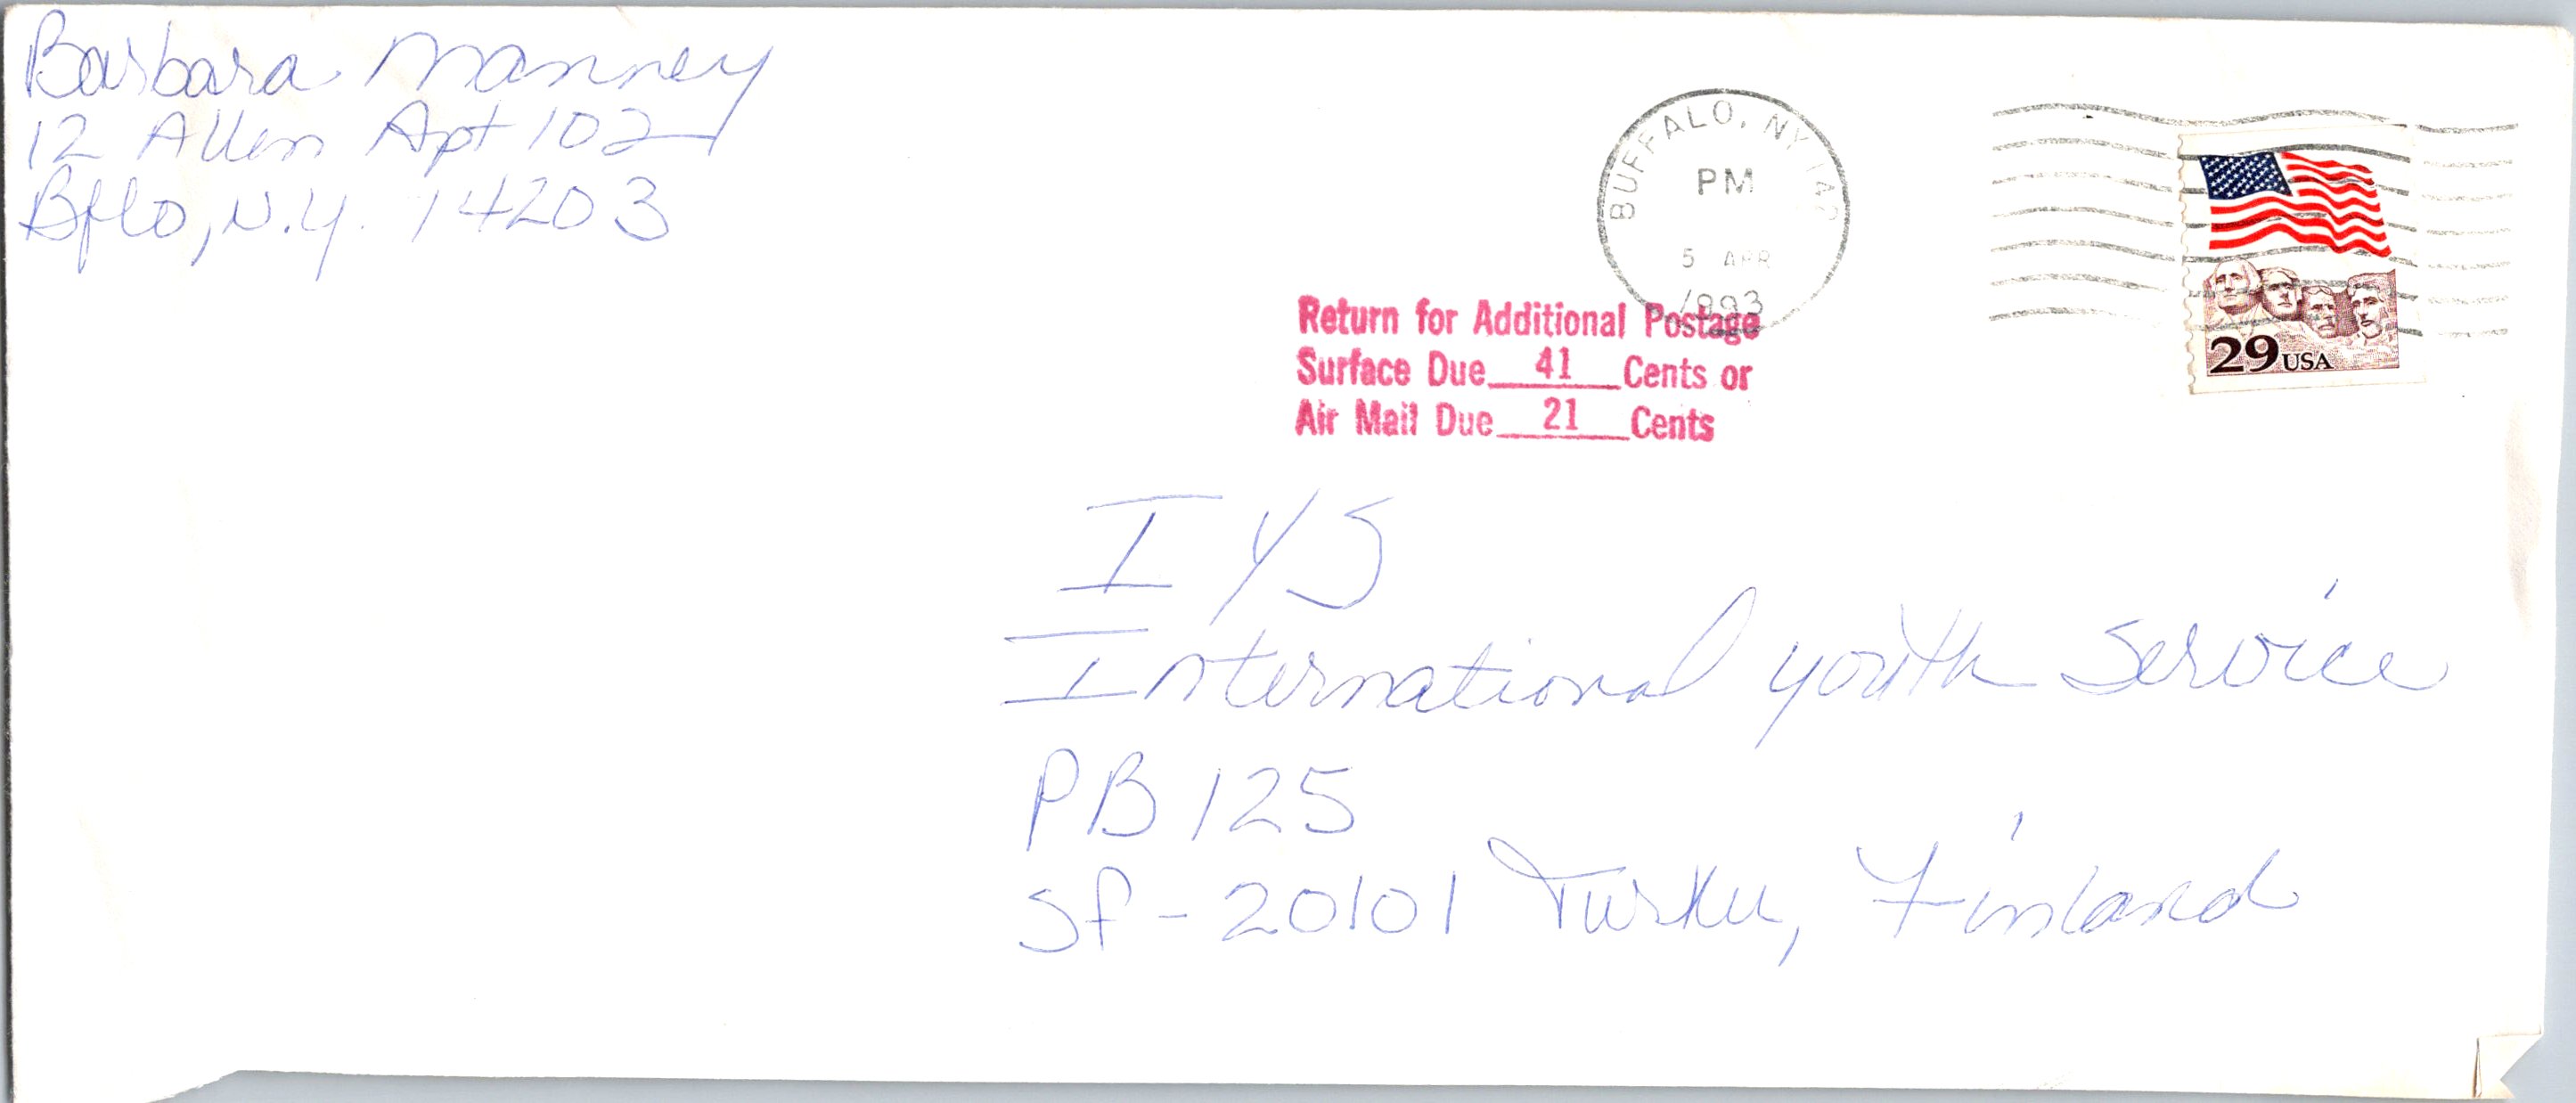 Barbara Manney
12 Allen Apt 102
Bflo, N.Y. 14203
BUFFALO, NY 142
PM
5 APR
1993
29 USA
Return for Additional Postage
Surface Due 41 Cents or
Air Mail Due 21 Cents
I Y S
International Youth Service
PB 125
SF-20101 Turku, Finland